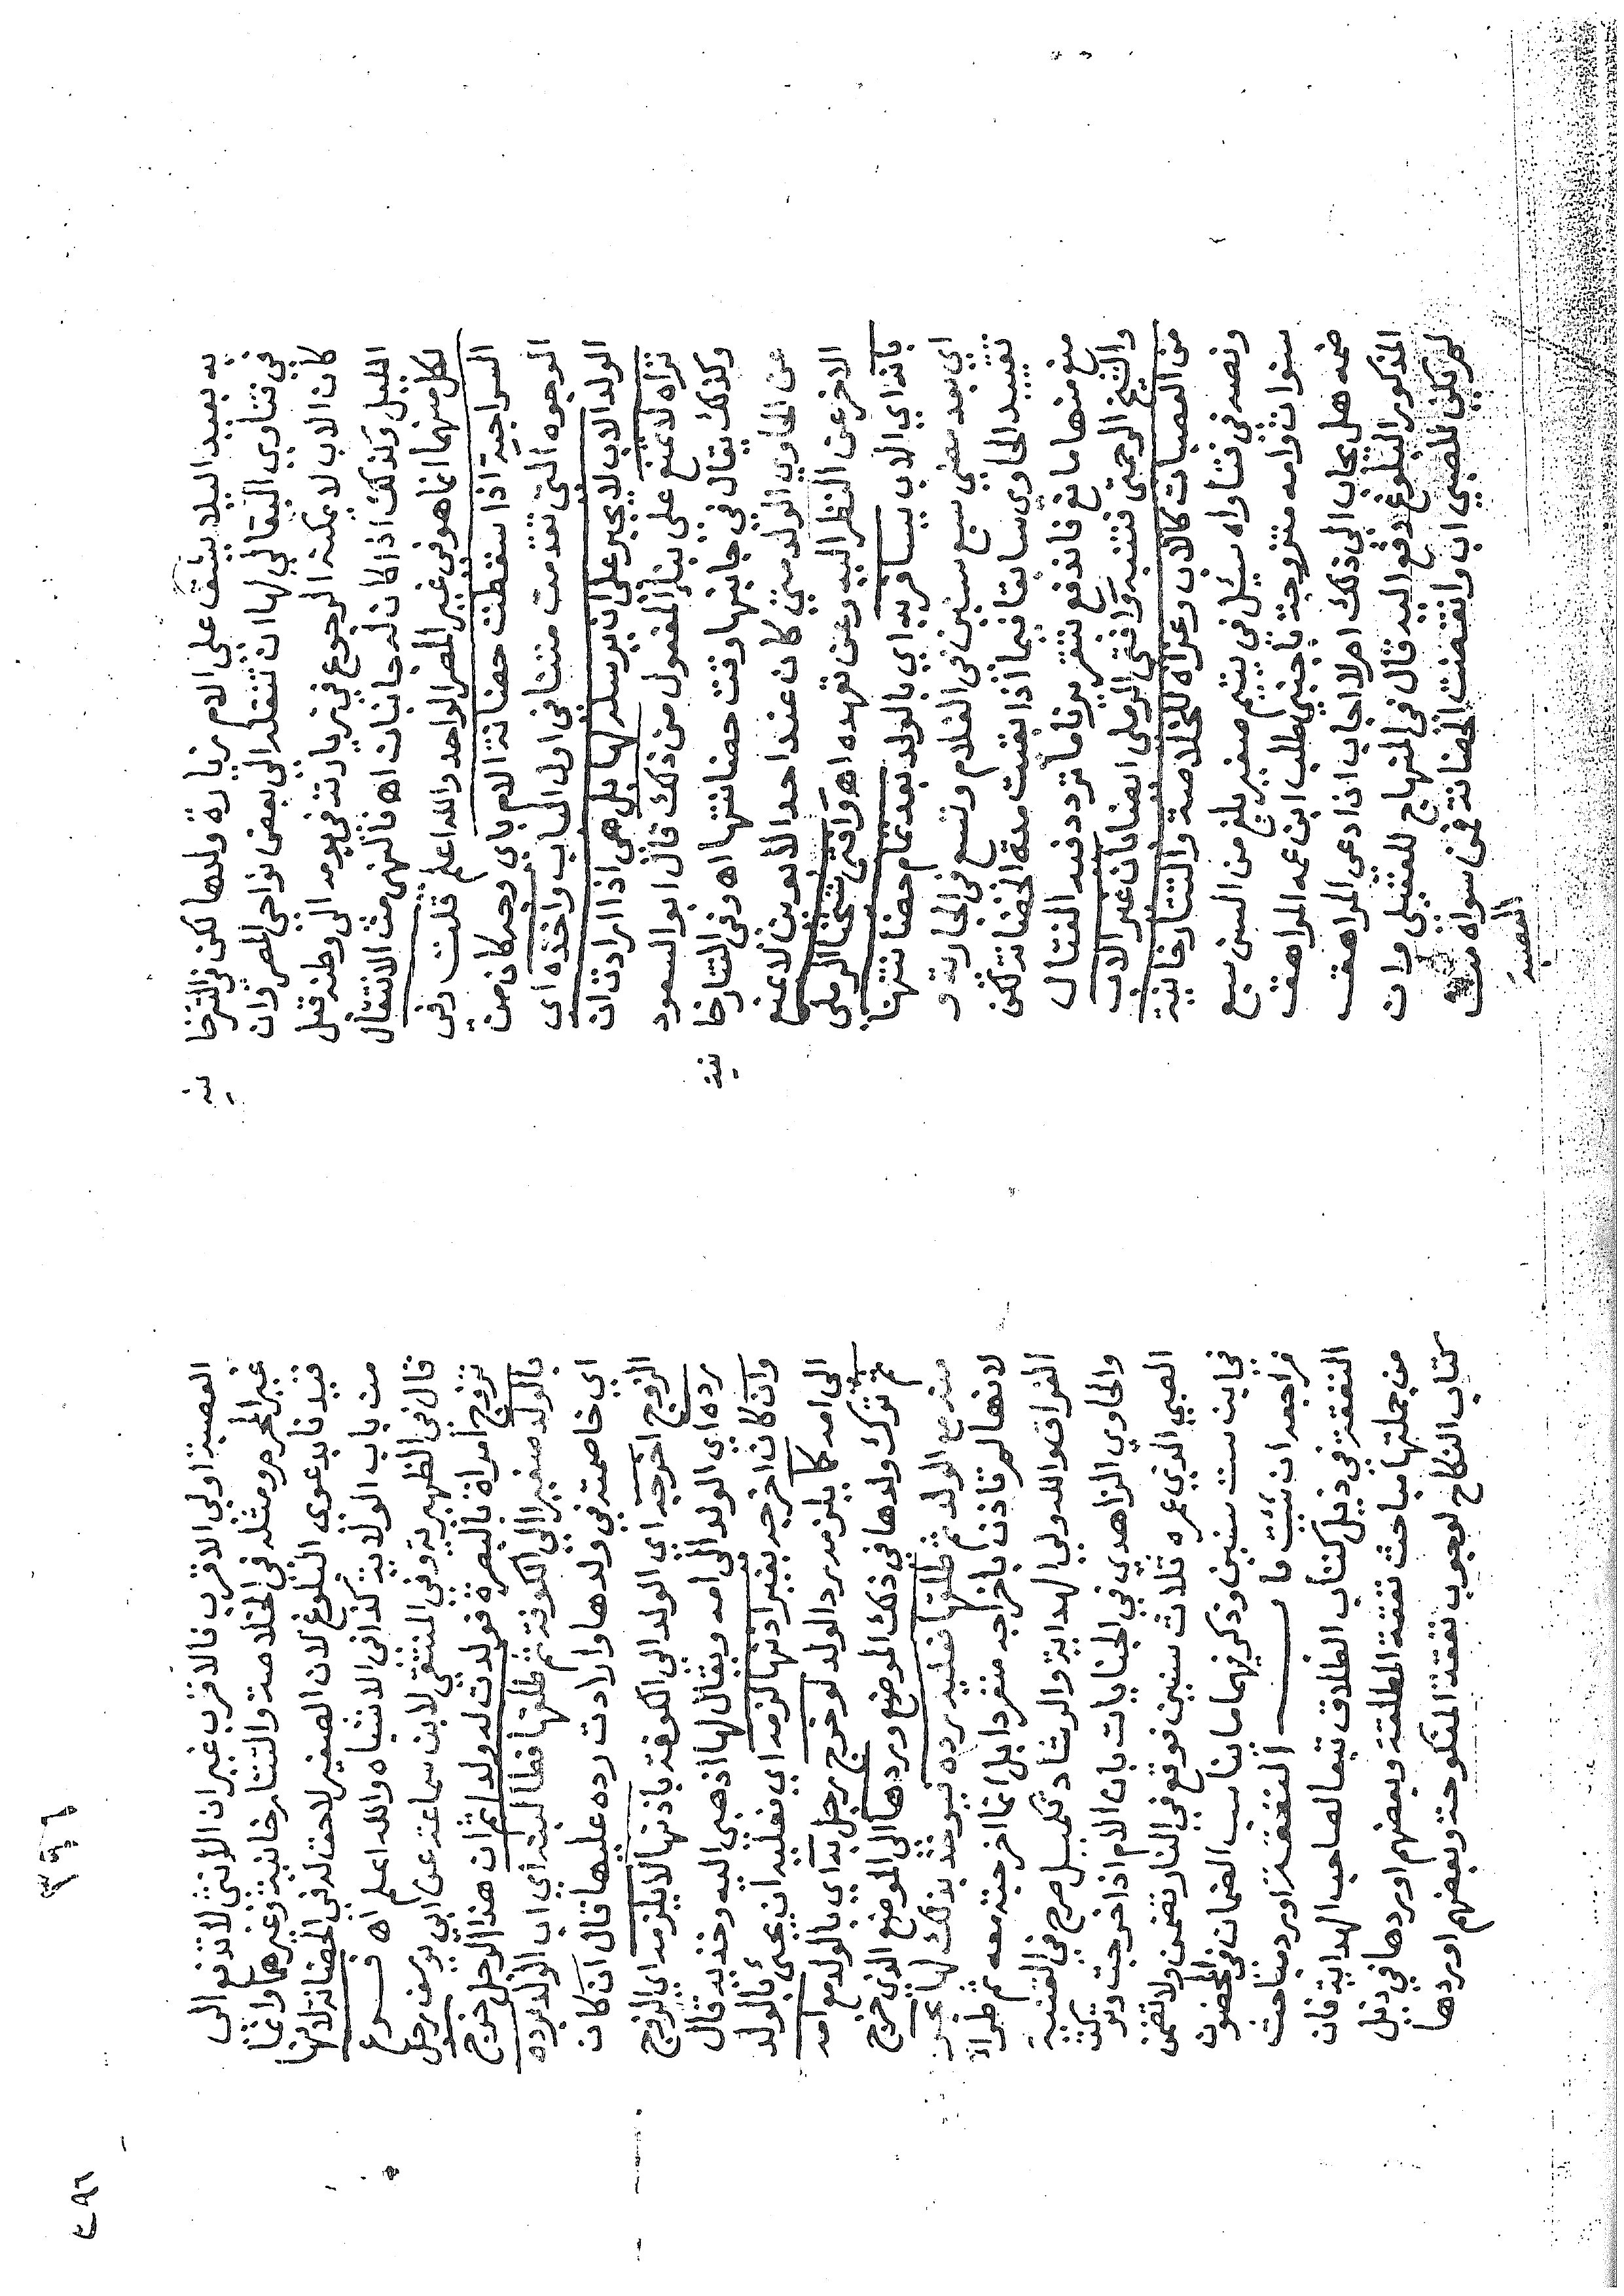 به بعيد البلد يشق على الام زيارة ولدها لكن في التترخا
نية
في فتاوي البقالي لها ان تنقله الى بعض نواحي المصر وان
كان الاب لا يمكنه الرجوع في زيارته في يومه الى وطنه قبل
الليل وكذلك اذا كان له جانبان اه فالنهي من الانتقال
لكل منهما انما هو في غير المصر الواحد والله اعلم قلت وفي
السراجية اذا سقطت حضانة الام باي وجه كان من
الوجوه التي تقدمت متنا في اول الباب واخذه اي
الولد الاب لا يجبر على ان يرسله لها بل هي اذا ارادت ان
تراه لا تمنع على بناء المفعول من ذلك قال ابو السعود
وكذلك يقال في جانبها وقت حضانتها اه وفي التتارخا
نية
عن الحاوي الولد متي كان عند احد الابوين لا يمنع
الاخر عن النظر اليه وعن تعهده اه وافتى شيخنا الرملي
بانه اي الاب يسافر به اي بالولد بعد تمام حضانتها
اي بعد مضي سبع سنين في الغلام وتسع في الجارية و
تقييد الحاوي سابقا فيما اذا بقيت مدة الحضانة لكن
منع منها مانع فاندفع تقرير ما تردد فيه الفتال
والشيخ الرحمتي فتنبه وافتى الرملي ايضا بان غير الاب
من العصبات كالاب وعزاه للخلاصة والتتارخانية
ونصه في فتاواه سئل في يتيم صغير بلغ من السن سبع
سنوات وامه متزوجة باجنبي طلب ابن عمه المراهق
ضمه هل يجاب الى ذلك ام لا اجاب اذا ادعى المراهق
المذكور البلوغ دفع اليه قال في المنهاج للعقيلي وان
لم يكن للصبي اب وانقضت الحضانة فمن سواه من
العصبة
العصبة اولى الاقرب فالاقرب غير ان الانثى لا تدفع الى
غير المحرم ومثله في الخلاصة والتتارخانية وغيرهما وانما
قيدنا بدعوى البلوغ لان الصغير لا حق له في الحضانة لانها
من باب الولاية كذا في الاشباه والله اعلم اه فـــروع
قال في الظهيرية وفي المنتقى لابن سماعة عن ابي يوسف رجل
تزوج امراة بالبصرة فولدت له ولدا ثم ان هذا الرجل خرج
بالولد صغيرا الى الكوفة ثم طلقها فطالبته اي اب الولد برده
اي خاصمته في ولدها وارادت رده عليها قال ان كان
الزوج اخرجه اي الولد الى الكوفة باذنها لا يلزمه اي الزوج
رده اي الولد الى امه ويقال لها اذهبي اليه وخذيه قال
وان كان اخرجه بغير اذنها لزمه اي فعليه ان يجئ بالولد
الى امه كما يلزمه رد الولد لو خرج رجل به اي بالولد مع امه
ثم ترك ولدها في ذلك الموضع وردها الى الموضع الذي خرج
منه مع الولد ثم طلقها فعليه رده يؤخذ بذلك لها بحر
لانها لم تاذن باخراجه منفردا بل انما اخرجته معه ثم طرأ
الفراق والله ولي الهداية والرشاد تكميل صرح في القنية
والحاوي الزاهدي في الجنايات بان الام اذا خرجت وتركت
الصبي الذي عمره ثلاث سنين فوقع في النار تضمن ولا تضمن
في ابن ست سنين وذكر فيهما ما يناسب الضمان في المحضون
فراجعه ان شئت بـــاب النفقة اورد مباحث
النفقة في ذيل كتاب الطلاق تبعا لصاحب الهداية فان
من جملتها مباحث نفقة المطلقة وبعضهم اوردها في ذيل
كتاب النكاح لوجوب نفقة المنكوحة وبعضهم اوردها
٢٩٦